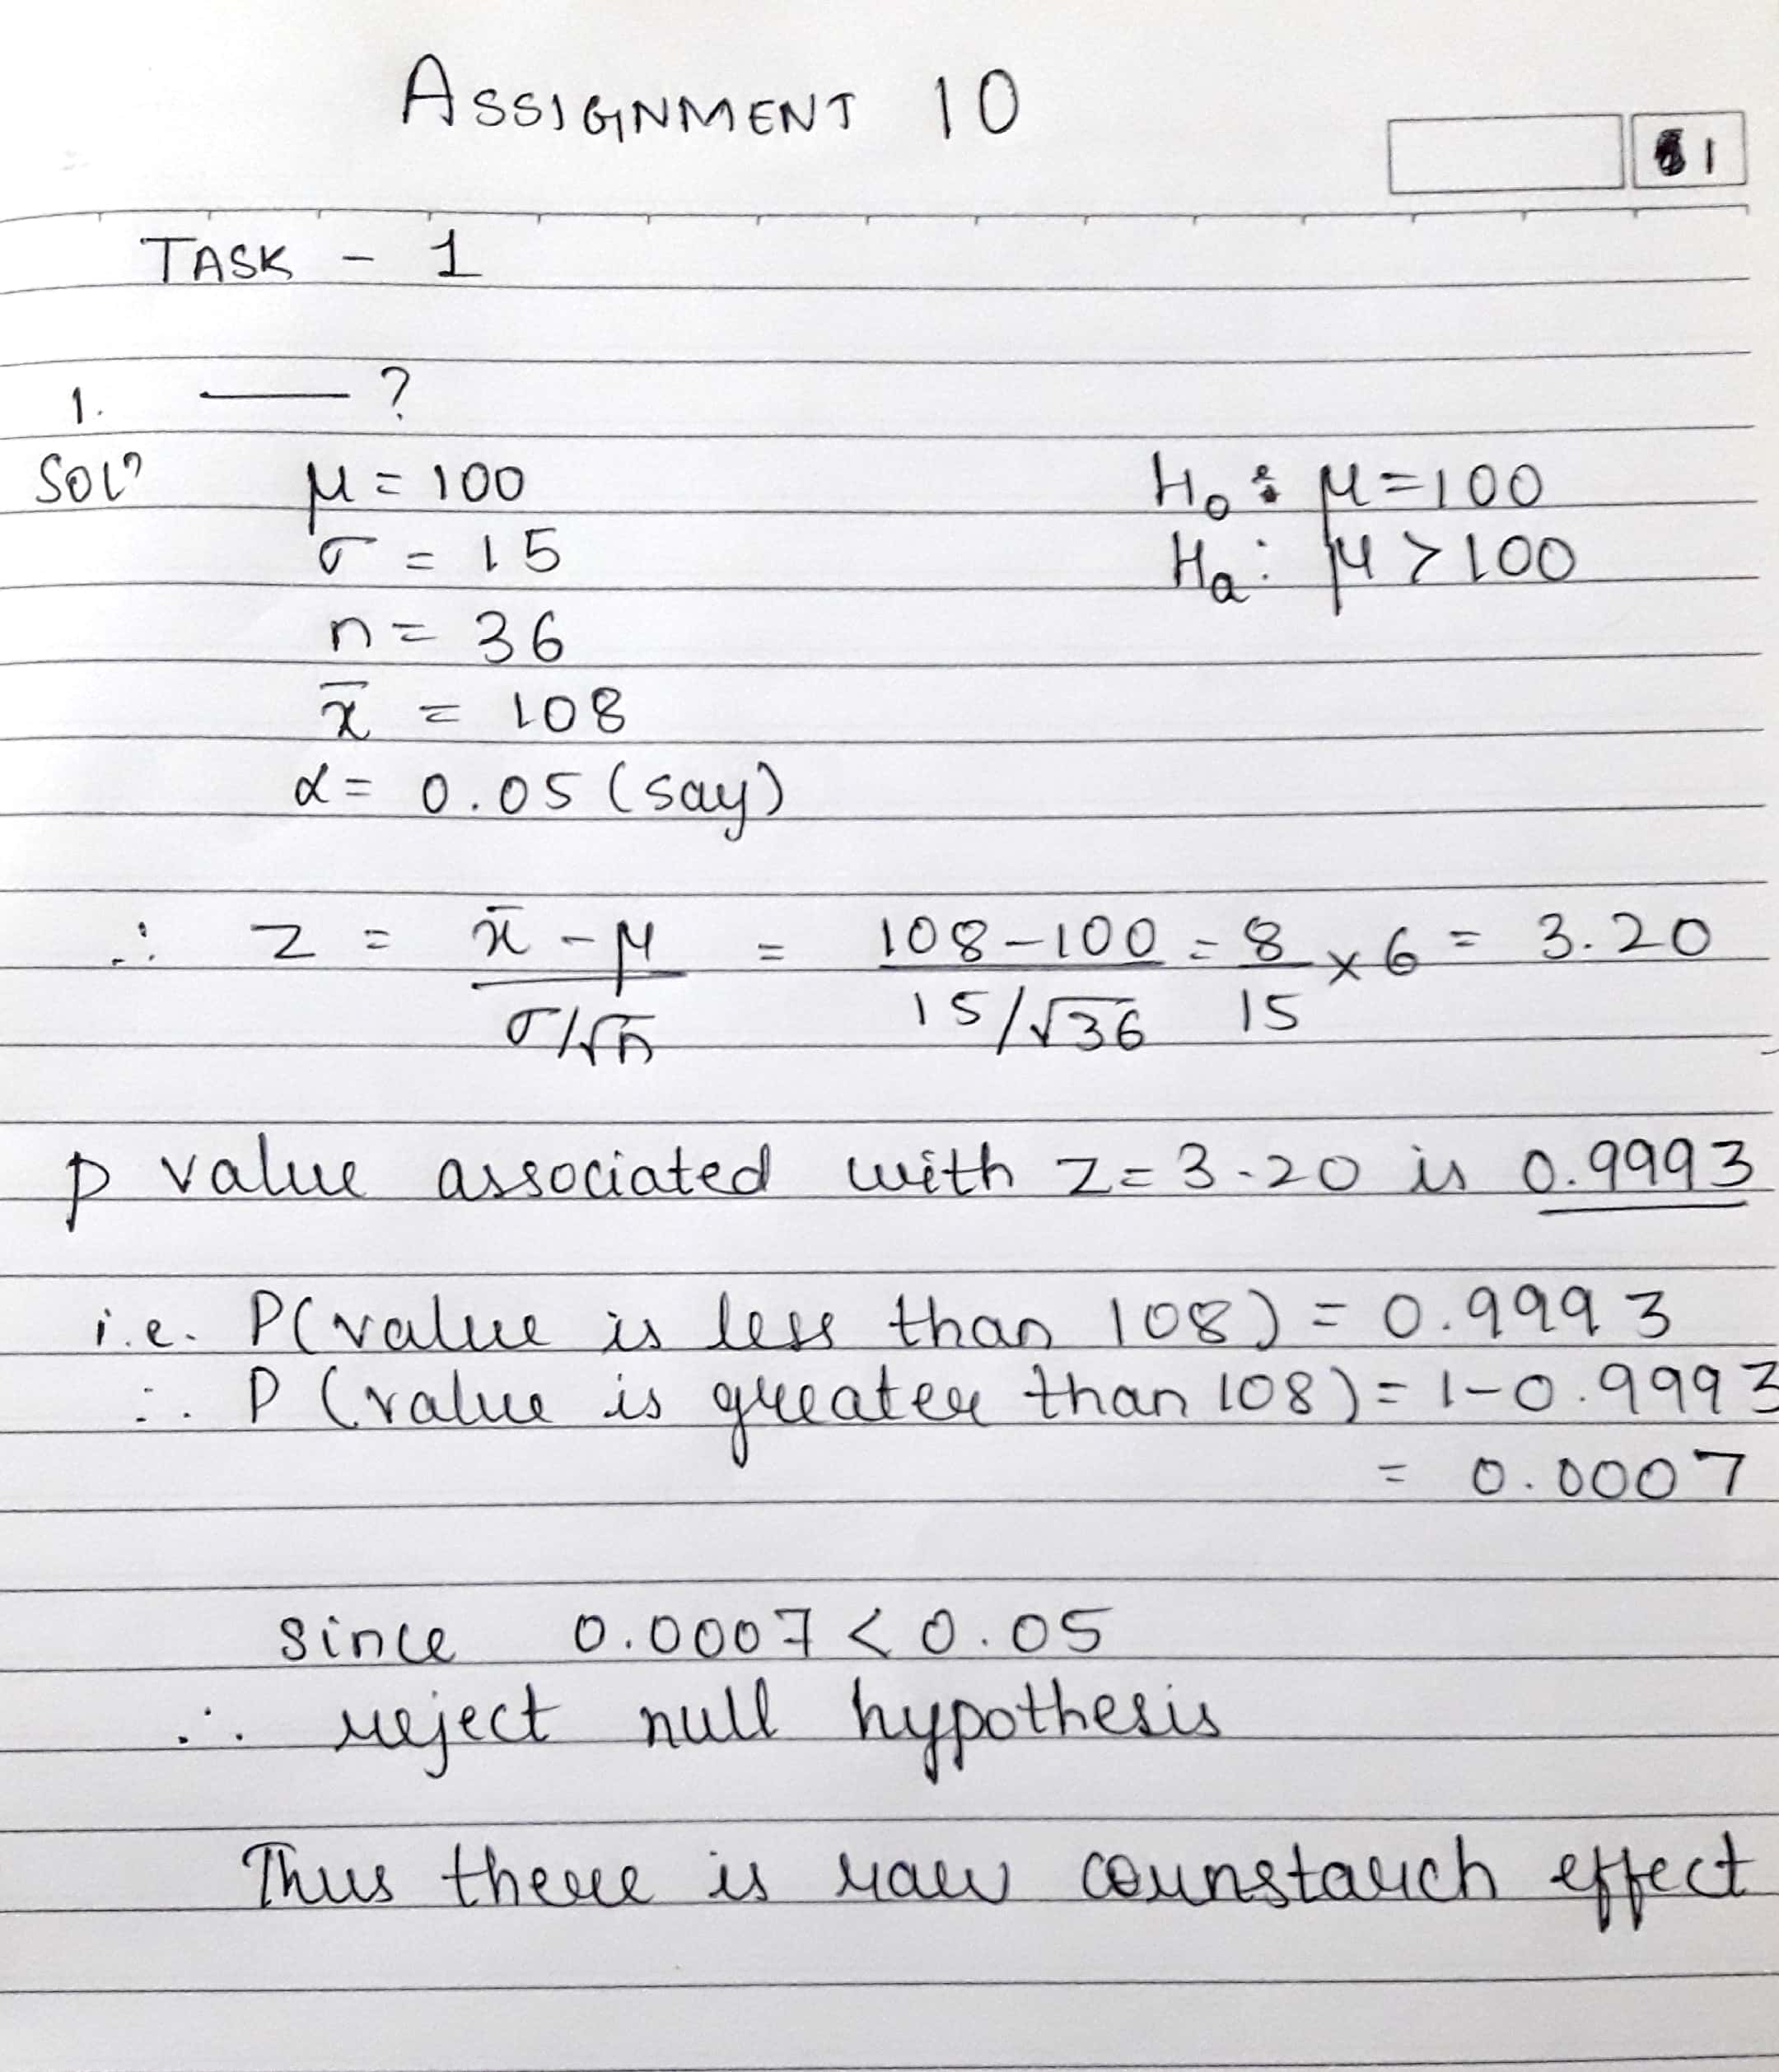 ASSIGNMENT 10
1
TASK - 1
1. —— ?
Solⁿ μ = 100 H₀ : μ = 100
σ = 15 Hₐ : μ > 100
n = 36
x̄ = 108
α = 0.05 (say)
∴ z = (x̄ - μ)/(σ/√n) = (108-100)/(15/√36) = 8/15 × 6 = 3.20
p value associated with z = 3.20 is 0.9993
i.e. P(value is less than 108) = 0.9993
∴ P(value is greater than 108) = 1-0.9993
= 0.0007
since 0.0007 < 0.05
∴ reject null hypothesis
Thus there is raw cornstarch effect